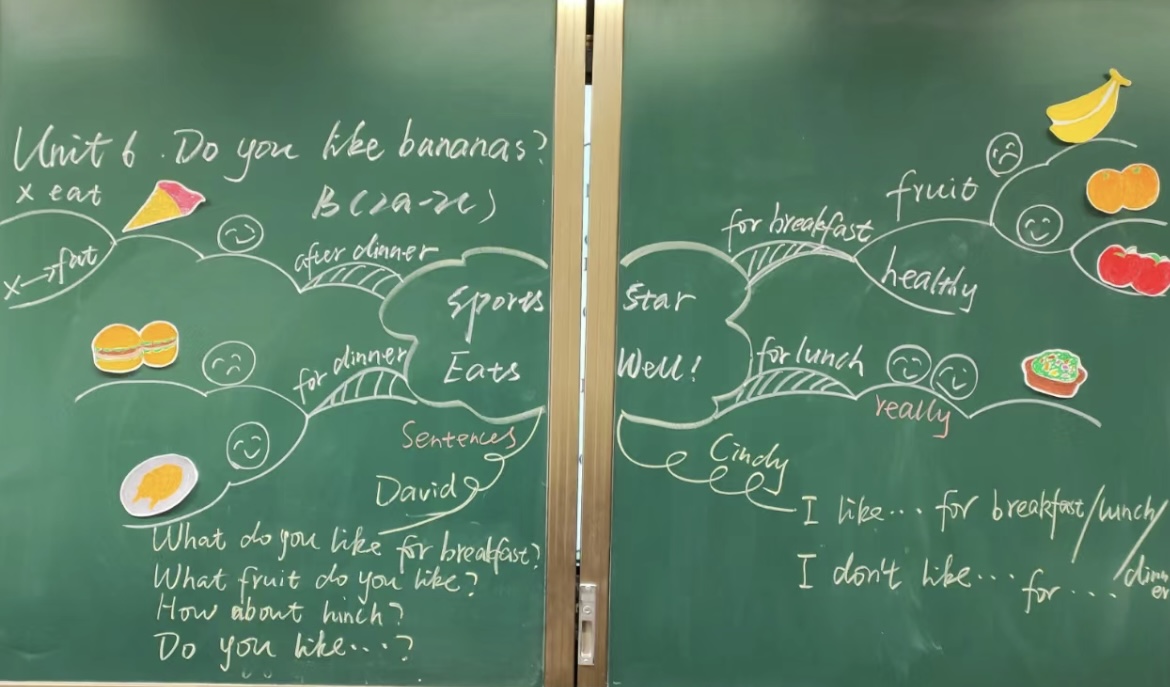 Unit 6 Do you like bananas?
B(2a-2c)
x eat
x→fat
after dinner
for dinner
Sports Star
Eats Well!
for breakfast
fruit
healthy
for lunch
really
Sentences
David
What do you like for breakfast?
What fruit do you like?
How about lunch?
Do you like...?
Cindy
I like... for breakfast/lunch/dinner
I don't like... for....